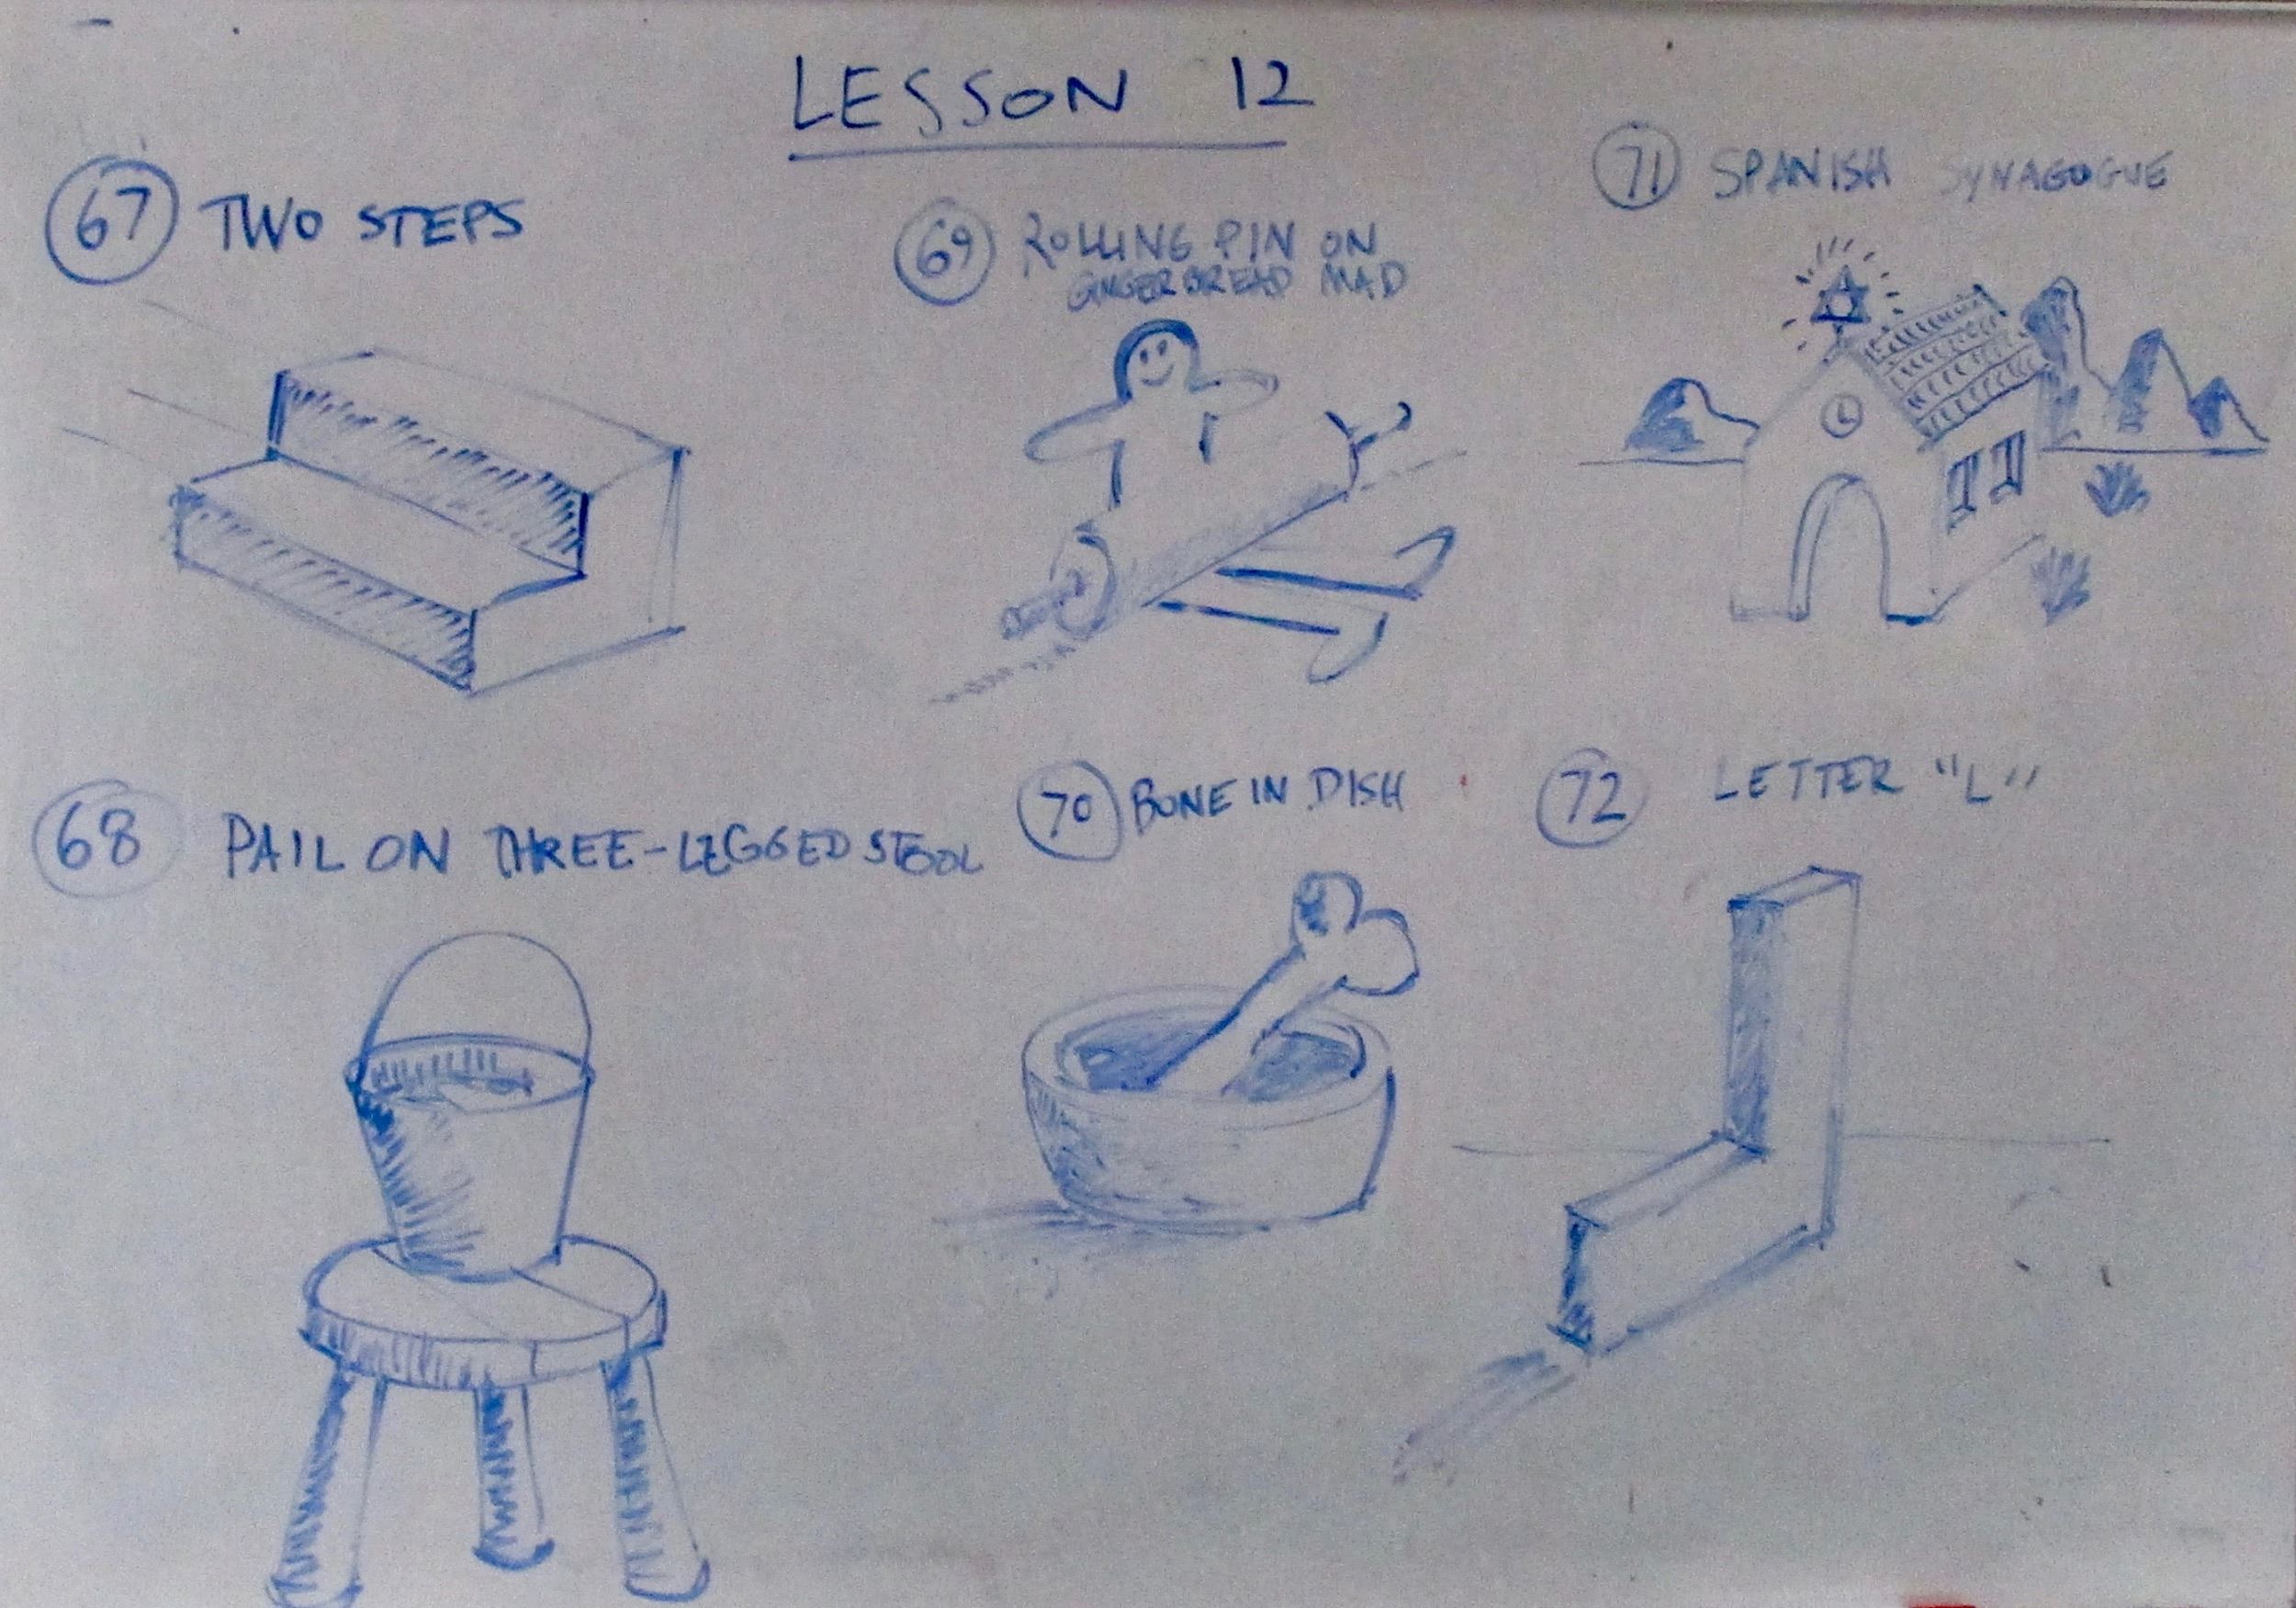 LESSON 12
67 TWO STEPS
68 PAIL ON THREE-LEGGED STOOL
69 ROLLING PIN ON
GINGERBREAD MAD
70 BONE IN DISH
71 SPANISH SYNAGOGUE
72 LETTER "L"